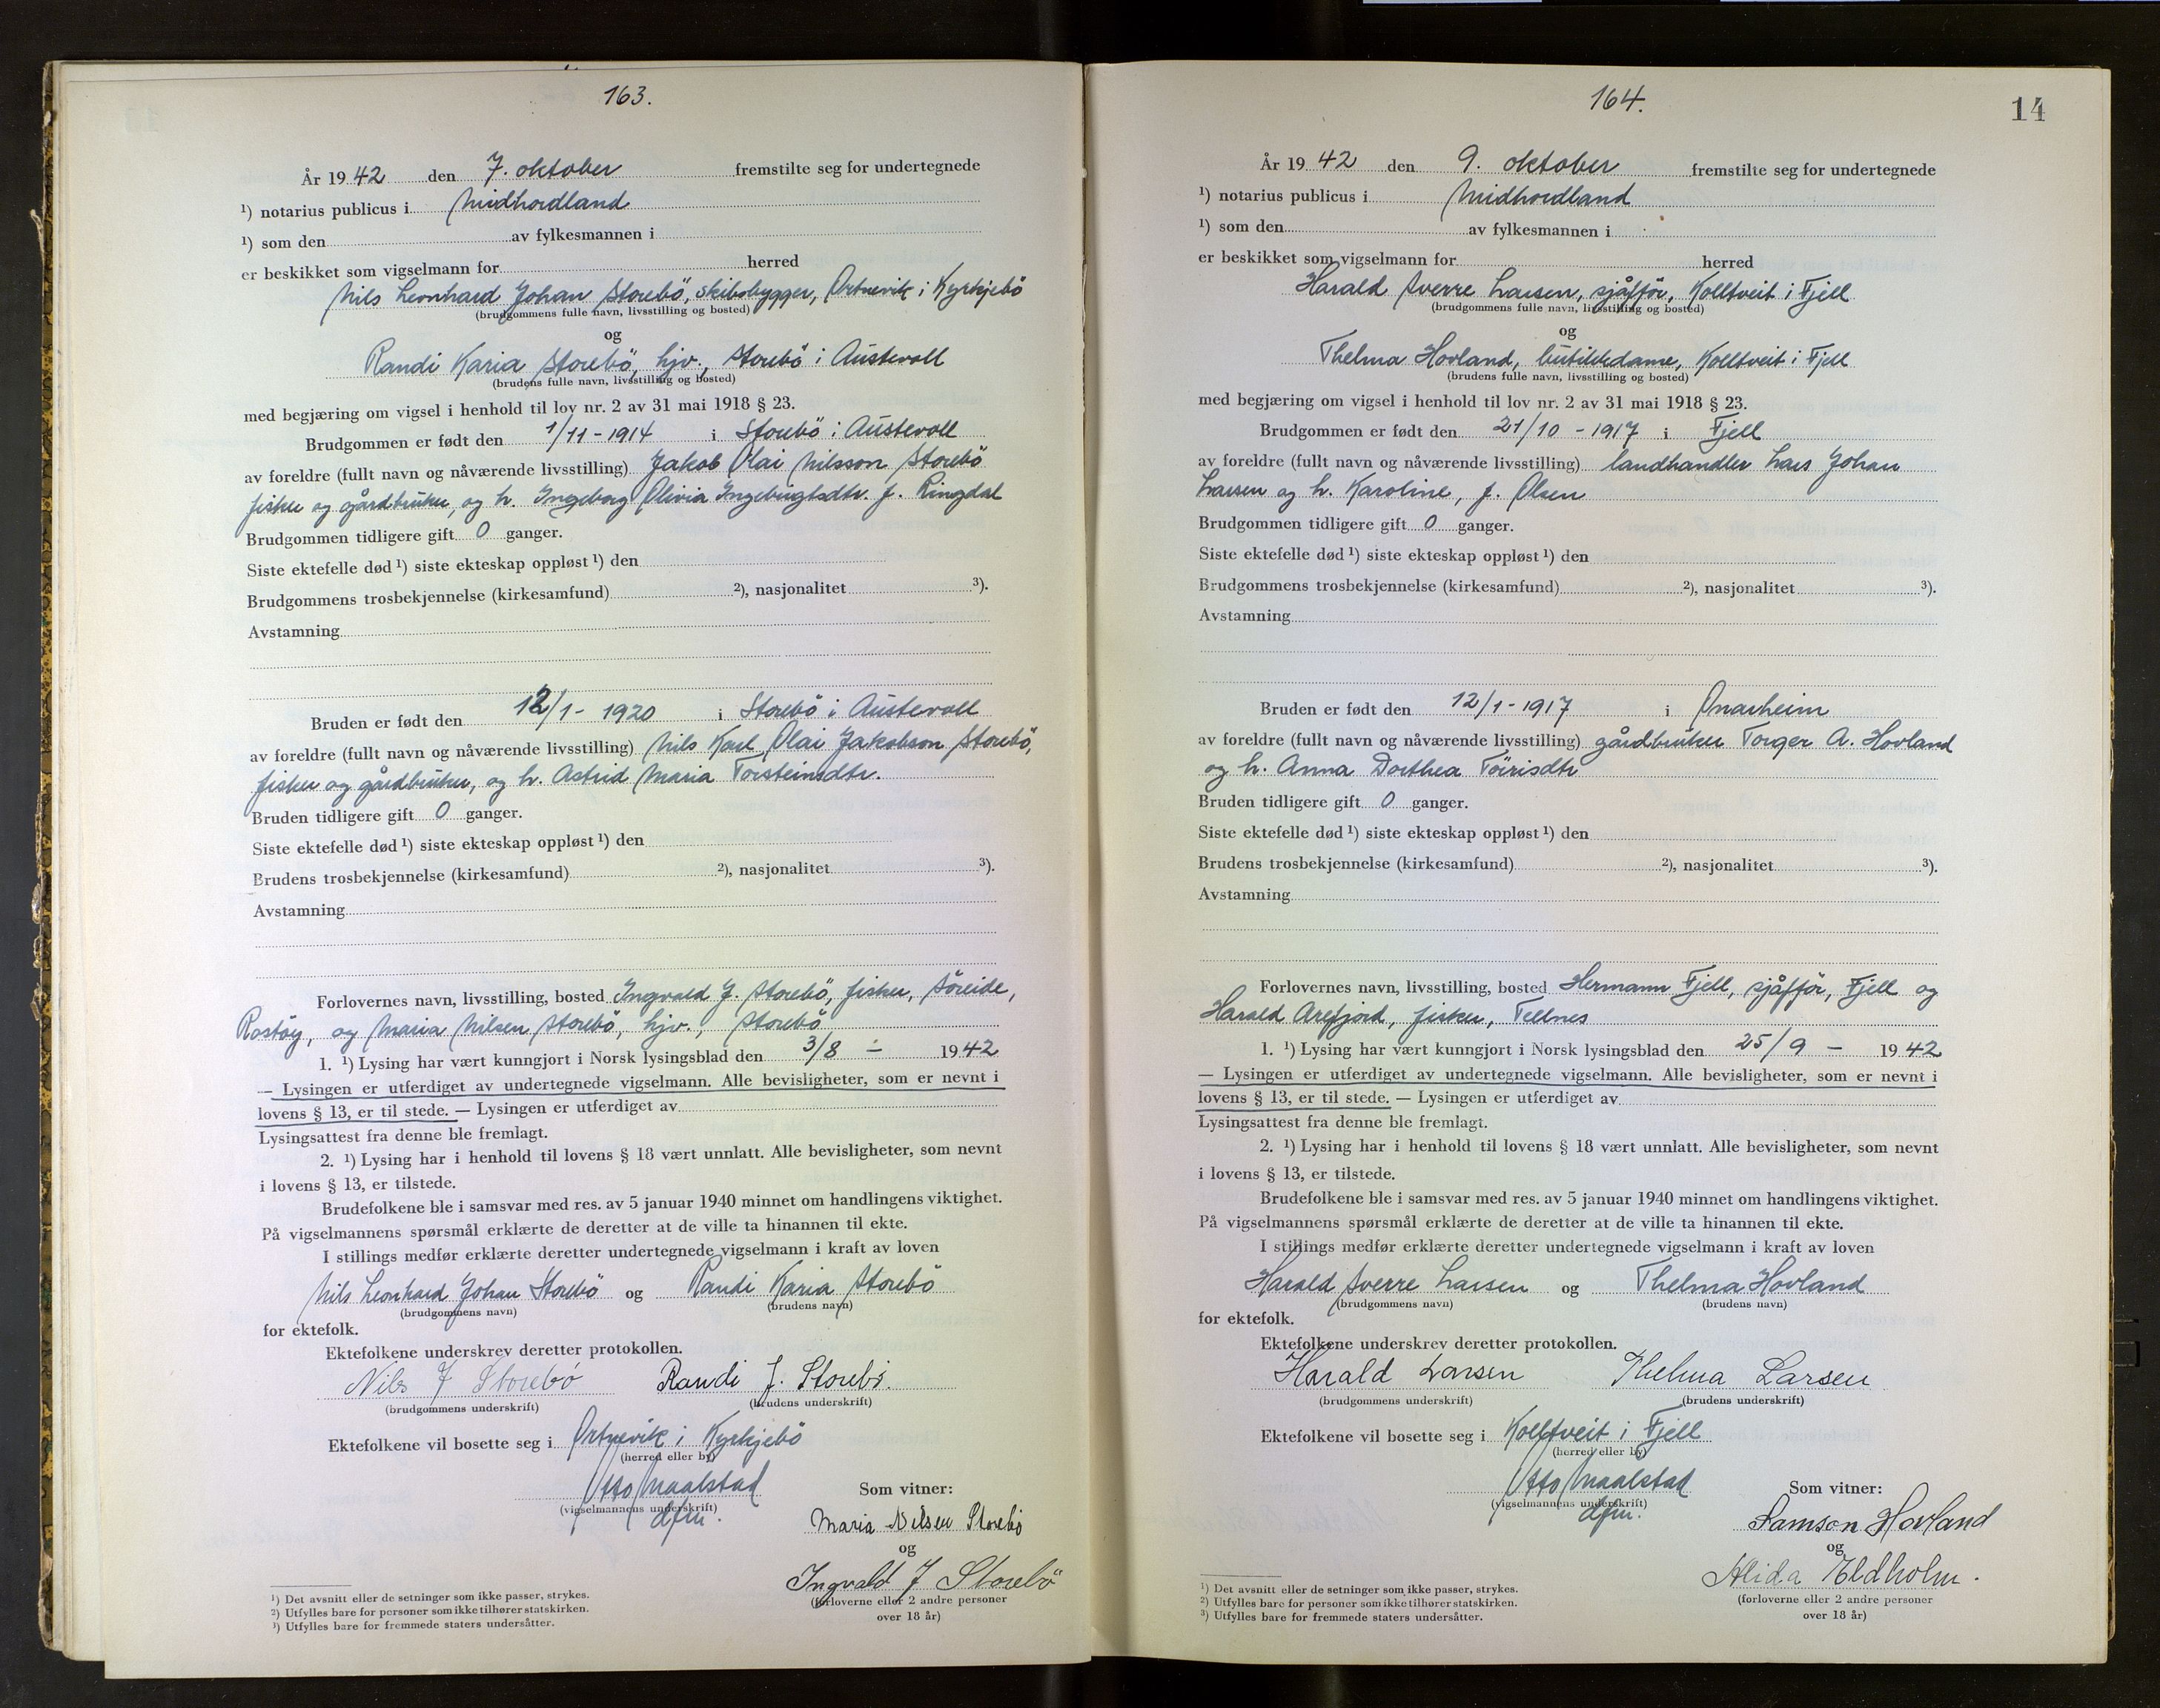 163.
År 19 42 den 7. oktober fremstilte seg for undertegnede
¹) notarius publicus i Midhordland
¹) som den av fylkesmannen i
er beskikket som vigselmann for herred
Nils Leonhard Johan Storebö, skibsbygger, Ortnevik i Kyrkjebö
(brudgommens fulle navn, livsstilling og bosted)
og
Randi Karia Storebö, hjv., Storebö i Austevoll
(brudens fulle navn, livsstilling og bosted)
med begjæring om vigsel i henhold til lov nr. 2 av 31 mai 1918 § 23.
Brudgommen er født den 1/11 - 1914 i Storebö i Austevoll
av foreldre (fullt navn og nåværende livsstilling) Jakob Olai Nilsson Storebö
fisker og gårdbruker, og h. Ingeborg Olivia Ingebrigtsdtr. f. Ringdal
Brudgommen tidligere gift 0 ganger.
Siste ektefelle død ¹) siste ekteskap oppløst ¹) den
Brudgommens trosbekjennelse (kirkesamfund) ²), nasjonalitet ³).
Avstamning
Bruden er født den 12/1 - 1920 i Storebö i Austevoll
av foreldre (fullt navn og nåværende livsstilling) Nils Karl Olai Jakobson Storebö,
fisker og gårdbruker, og h. Astrid Maria Torsteinsdtr.
Bruden tidligere gift 0 ganger.
Siste ektefelle død ¹) siste ekteskap oppløst ¹) den
Brudens trosbekjennelse (kirkesamfund) ²), nasjonalitet ³).
Avstamning
Forlovernes navn, livsstilling, bosted Ingvald J. Storebö, fisker, Söreide,
Rostöy, og Maria Nilsen Storebö, hjv., Storebö
1. ¹) Lysing har vært kunngjort i Norsk lysingsblad den 3/8 - 19 42
— Lysingen er utferdiget av undertegnede vigselmann. Alle bevisligheter, som er nevnt i
lovens § 13, er til stede. — Lysingen er utferdiget av
Lysingsattest fra denne ble fremlagt.
2. ¹) Lysing har i henhold til lovens § 18 vært unnlatt. Alle bevisligheter, som nevnt
i lovens § 13, er tilstede.
Brudefolkene ble i samsvar med res. av 5 januar 1940 minnet om handlingens viktighet.
På vigselmannens spørsmål erklærte de deretter at de ville ta hinannen til ekte.
I stillings medfør erklærte deretter undertegnede vigselmann i kraft av loven
Nils Leonhard Johan Storebö og Randi Karia Storebö
(brudgommens navn) (brudens navn)
for ektefolk.
Ektefolkene underskrev deretter protokollen.
Nils J Storebö Randi J. Storebö.
(brudgommens underskrift) (brudens underskrift)
Ektefolkene vil bosette seg i Ortnevik i Kyrkjebö
(herred eller by)
Otto Maalstad Som vitner:
(vigselmannens underskrift)
dfm.
Maria Nilsen Storebö
og
Ingvald J Storebö
(forloverne eller 2 andre personer
over 18 år)
¹) Det avsnitt eller de setninger som ikke passer, strykes.
²) Utfylles bare for personer som ikke tilhører statskirken.
³) Utfylles bare for fremmede staters undersåtter.
164.
14
År 19 42 den 9. oktober fremstilte seg for undertegnede
¹) notarius publicus i Midhordland
¹) som den av fylkesmannen i
er beskikket som vigselmann for herred
Harald Sverre Larsen, sjåffør, Kolltveit i Fjell
(brudgommens fulle navn, livsstilling og bosted)
og
Thelma Hovland, butikkdame, Kolltveit i Fjell
(brudens fulle navn, livsstilling og bosted)
med begjæring om vigsel i henhold til lov nr. 2 av 31 mai 1918 § 23.
Brudgommen er født den 21/10 - 1917 i Fjell
av foreldre (fullt navn og nåværende livsstilling) landhandler Lars Johan
Larsen og h. Karoline, f. Olsen
Brudgommen tidligere gift 0 ganger.
Siste ektefelle død ¹) siste ekteskap oppløst ¹) den
Brudgommens trosbekjennelse (kirkesamfund) ²), nasjonalitet ³).
Avstamning
Bruden er født den 12/1 - 1917 i Onarheim
av foreldre (fullt navn og nåværende livsstilling) gårdbruker Torger A. Hovland
og h. Anna Dorthea
Bruden tidligere gift 0 ganger.
Siste ektefelle død ¹) siste ekteskap oppløst ¹) den
Brudens trosbekjennelse (kirkesamfund) ²), nasjonalitet ³).
Avstamning
Forlovernes navn, livsstilling, bosted Hermann Fjell, sjåffør, Fjell og
Harald Arefjord, fisker, Tellnes
1. ¹) Lysing har vært kunngjort i Norsk lysingsblad den 25/9 - 19 42
— Lysingen er utferdiget av undertegnede vigselmann. Alle bevisligheter, som er nevnt i
lovens § 13, er til stede. — Lysingen er utferdiget av
Lysingsattest fra denne ble fremlagt.
2. ¹) Lysing har i henhold til lovens § 18 vært unnlatt. Alle bevisligheter, som nevnt
i lovens § 13, er tilstede.
Brudefolkene ble i samsvar med res. av 5 januar 1940 minnet om handlingens viktighet.
På vigselmannens spørsmål erklærte de deretter at de ville ta hinannen til ekte.
I stillings medfør erklærte deretter undertegnede vigselmann i kraft av loven
Harald Sverre Larsen og Thelma Hovland
(brudgommens navn) (brudens navn)
for ektefolk.
Ektefolkene underskrev deretter protokollen.
Harald Larsen Thelma Larsen
(brudgommens underskrift) (brudens underskrift)
Ektefolkene vil bosette seg i Kolltveit i Fjell
(herred eller by)
Otto Maalstad Som vitner:
(vigselmannens underskrift)
dfm.
Samson Hovland
og
Alida Eldholm.
(forloverne eller 2 andre personer
over 18 år)
¹) Det avsnitt eller de setninger som ikke passer, strykes.
²) Utfylles bare for personer som ikke tilhører statskirken.
³) Utfylles bare for fremmede staters undersåtter.